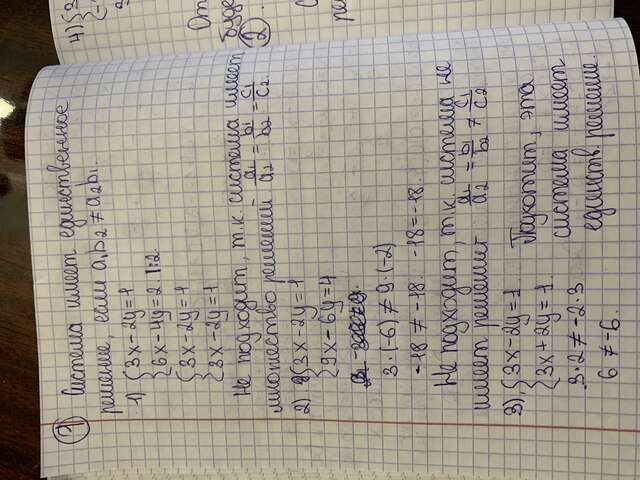 1 Система имеет единственное
решение, если a₁b₂ ≠ a₂b₁.
1) {3x-2y=1
{6x-4y=2 |:2
{3x-2y=1
{3x-2y=1
Не подходит, т.к. система имеет
множество решений - a₁/a₂ = b₁/b₂ = c₁/c₂
2) {3x-2y=1
{9x-6y=4
3·(-6) ≠ 9·(-2)
-18 ≠ -18. -18=-18.
Не подходит, т.к. система не
имеет решений - a₁/a₂ = b₁/b₂ ≠ c₁/c₂
3) {3x-2y=1
{3x+2y=1.
Подходит, эта
система имеет
единств. решение.
3·2 ≠ -2·3
6 ≠ -6.
4) {
От
буде
2